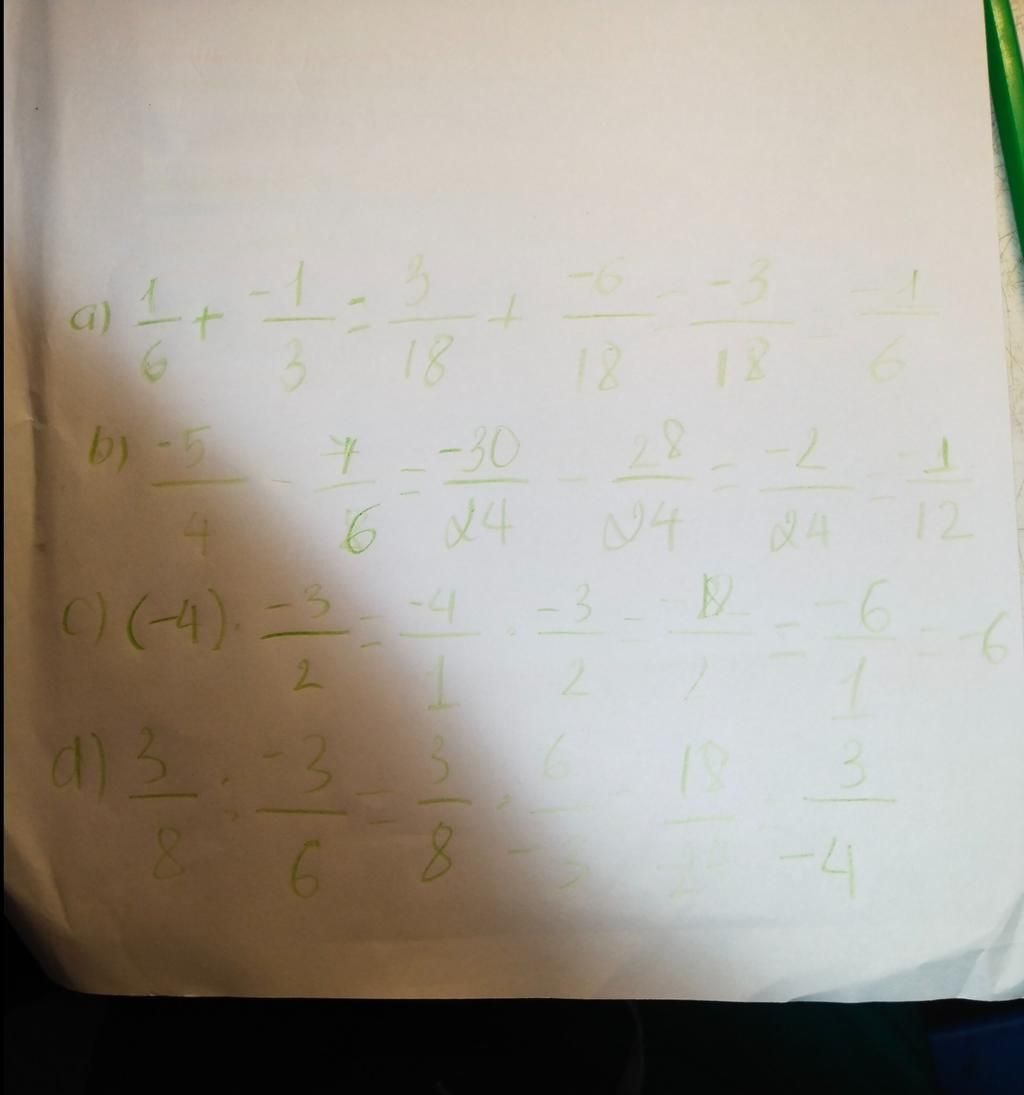 a) 1/6 + -1/3 = 3/18 + -6/18 = -3/18 = -1/6
b) -5/4 - 7/6 = -30/24 - 28/24 = -2/24 = -1/12
c) (-4) · -3/2 = -4/1 · -3/2 = -12/2 = -6/1 = -6
d) 3/8 : -3/6 = 3/8 · 6/-3 = 18/-24 = 3/-4